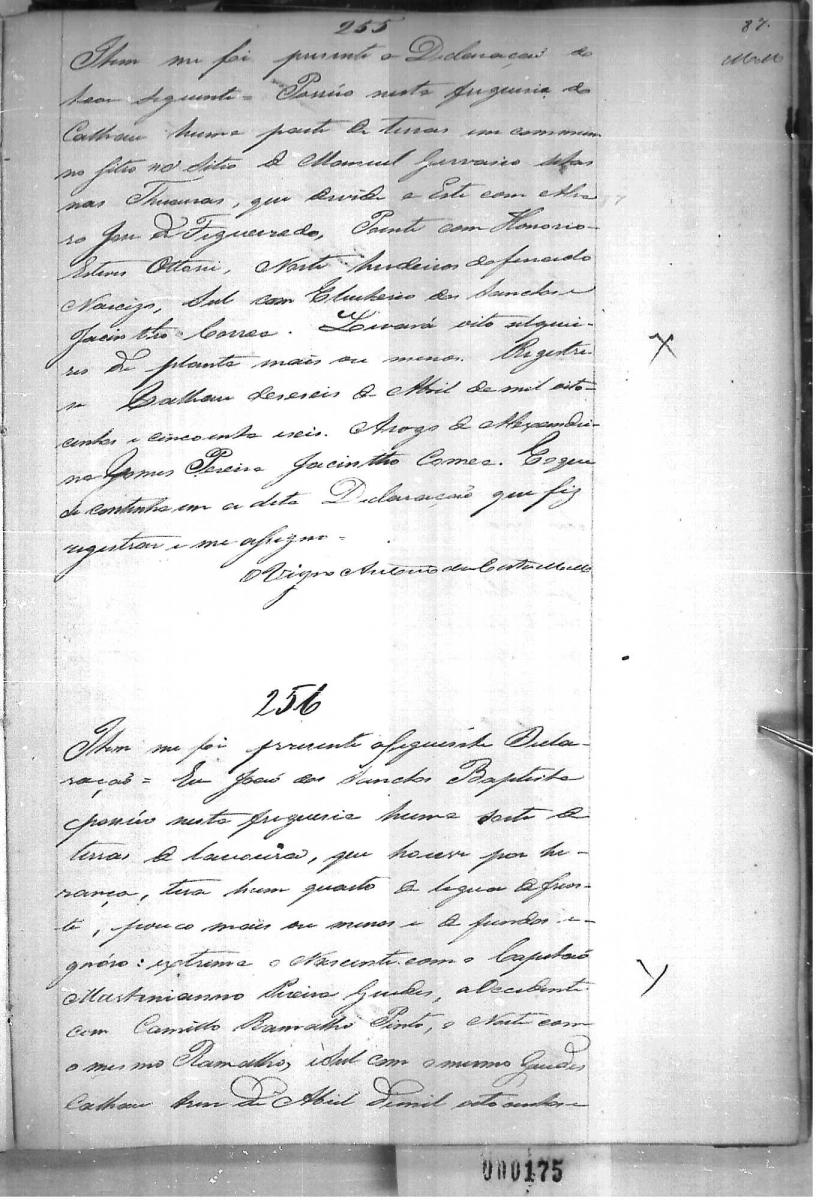 255
87.
Mello
Item me foi presente a Declaração do
teor seguinte = Possúo nesta freguesia do
Calhau huma parte de terras em commum
no sitio de Manuel Gervasio sitas
nas, que devide a Este com
ro José de Figueiredo, Poente com Honorio
Esteves Ottoni, Norte herdeiros do finado
Narcizo, Sul com Eleuterio dos Sanctos e
Jacintho Correa. Levará oito alquei-
res de planta mais ou menos. Registre-
se Calhau deseseis de Abril de mil oito
centos e cincoenta e seis. Arogo de Alexandri-
na Gomes Pereira Jacintho Correa. E o que
se continha em a dita Declaração que fiz
registrar e me assigno =
O Vigro Antonio da Costa Mello
256
Item me foi presente a seguinte Decla-
ração = Eu João dos Sanctos Baptista
possúo nesta freguesia huma sorte de
terras de lavoura, que houve por he-
rança, terá hum quarto de legoa de fren-
te, pouco mais ou menos e de fundos i-
gnóro: extrema o Nascente com o Capitão
Martinianno Pereira Guedes, a Occidente
com Camillo Ramalho Pinto, o Norte com
o mesmo Ramalho, e Sul com o mesmo Guedes
Calhau hum de Abril de mil oito centos e
000175